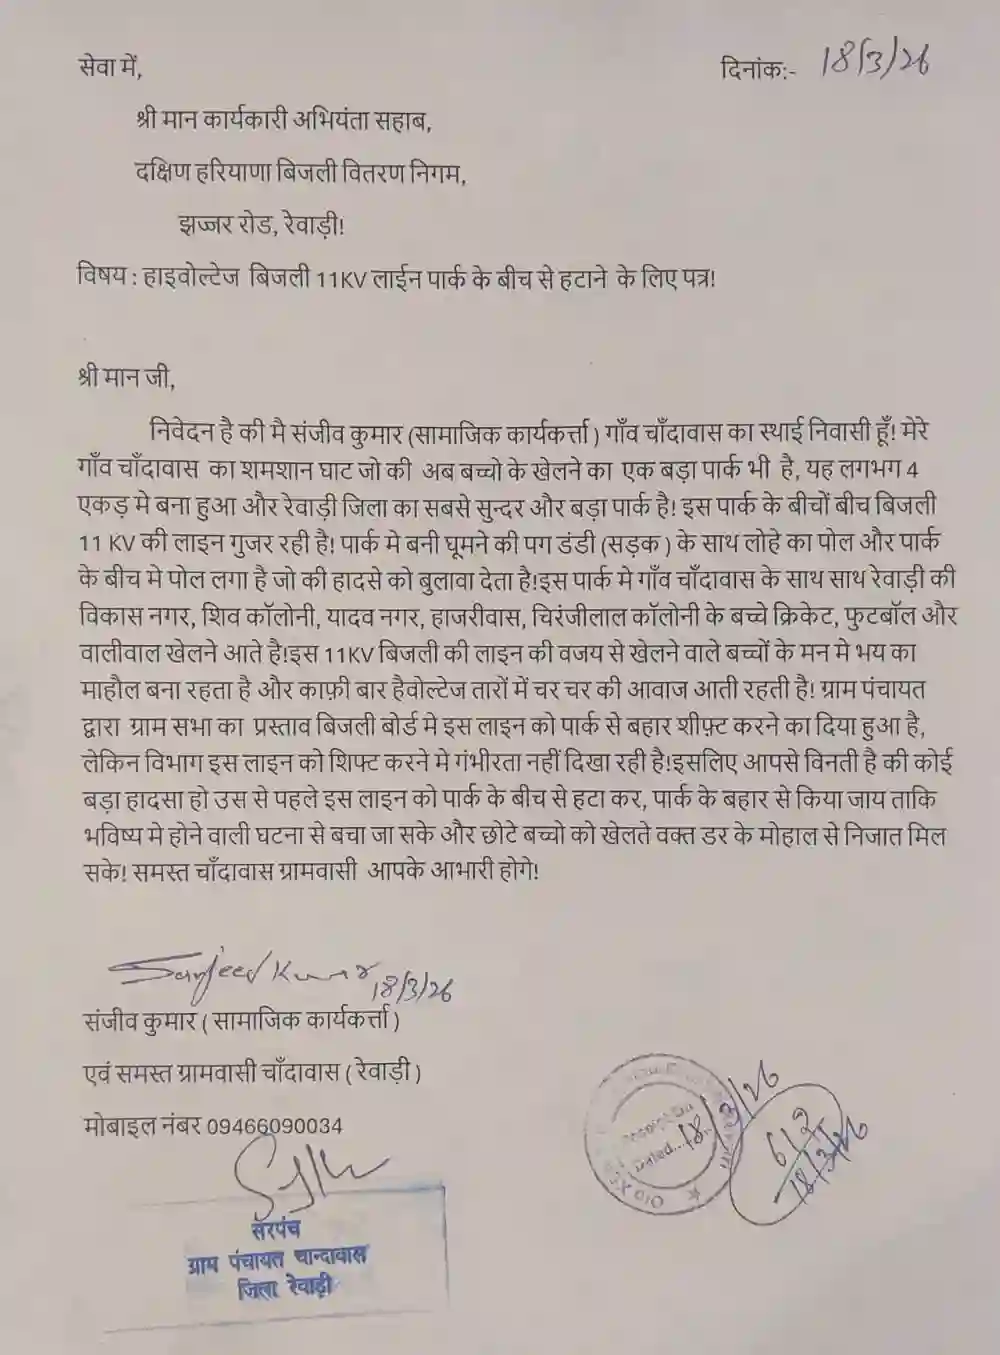 सेवा में,
दिनांक:- 18/3/26
श्री मान कार्यकारी अभियंता सहाब,
दक्षिण हरियाणा बिजली वितरण निगम,
झज्जर रोड, रेवाड़ी!
विषय : हाइवोल्टेज बिजली 11KV लाईन पार्क के बीच से हटाने के लिए पत्र!
श्री मान जी,
निवेदन है की मै संजीव कुमार (सामाजिक कार्यकर्त्ता ) गाँव चाँदावास का स्थाई निवासी हूँ! मेरे
गाँव चाँदावास का शमशान घाट जो की अब बच्चो के खेलने का एक बड़ा पार्क भी है, यह लगभग 4
एकड़ मे बना हुआ और रेवाड़ी जिला का सबसे सुन्दर और बड़ा पार्क है! इस पार्क के बीचों बीच बिजली
11 KV की लाइन गुजर रही है! पार्क मे बनी घूमने की पग डंडी (सड़क ) के साथ लोहे का पोल और पार्क
के बीच मे पोल लगा है जो की हादसे को बुलावा देता है!इस पार्क मे गाँव चाँदावास के साथ साथ रेवाड़ी की
विकास नगर, शिव कॉलोनी, यादव नगर, हाजरीवास, चिरंजीलाल कॉलोनी के बच्चे क्रिकेट, फुटबॉल और
वालीवाल खेलने आते है!इस 11KV बिजली की लाइन की वजय से खेलने वाले बच्चों के मन मे भय का
माहौल बना रहता है और काफ़ी बार हैवोल्टेज तारों में चर चर की आवाज आती रहती है! ग्राम पंचायत
द्वारा ग्राम सभा का प्रस्ताव बिजली बोर्ड मे इस लाइन को पार्क से बहार शीफ़्ट करने का दिया हुआ है,
लेकिन विभाग इस लाइन को शिफ्ट करने मे गंभीरता नहीं दिखा रही है!इसलिए आपसे विनती है की कोई
बड़ा हादसा हो उस से पहले इस लाइन को पार्क के बीच से हटा कर, पार्क के बहार से किया जाय ताकि
भविष्य मे होने वाली घटना से बचा जा सके और छोटे बच्चो को खेलते वक्त डर के मोहाल से निजात मिल
सके! समस्त चाँदावास ग्रामवासी आपके आभारी होगे!
Sanjeev Kumar 18/3/26
संजीव कुमार ( सामाजिक कार्यकर्त्ता )
एवं समस्त ग्रामवासी चाँदावास ( रेवाड़ी )
मोबाइल नंबर 09466090034
Dated... 18/3/26
612
18/3/26
सरपंच
ग्राम पंचायत चान्दावास
जिला रेवाड़ी